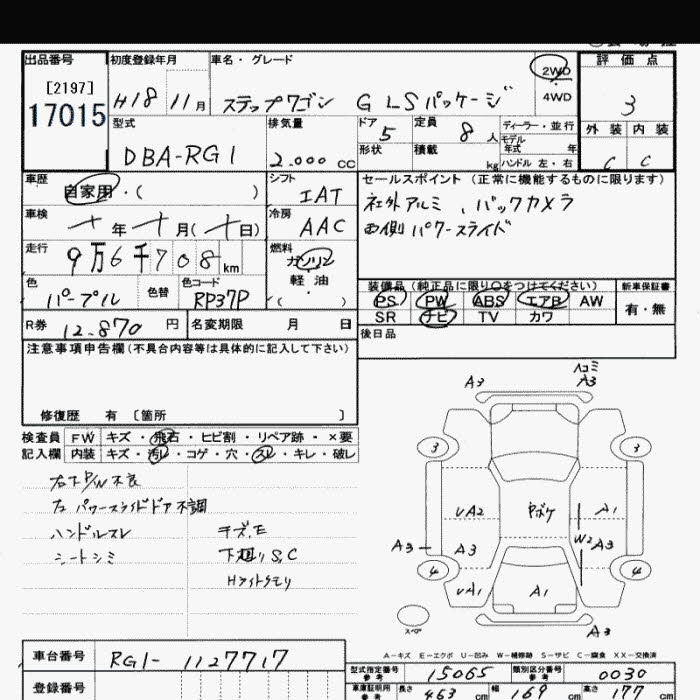 出品番号
[2197]
17015
初度登録年月
H18 11月
車名・グレード
ステップワゴン G LSパッケージ
2WD
4WD
評価点
3
外装 内装
C C
型式
DBA-RG1
排気量
2.000 CC
ドア 5
形状
定員 8 人
積載 kg
ディーラー・並行
モデル年式 年
ハンドル 左・右
車歴
自家用・( )
シフト
IAT
セールスポイント (正常に機能するものに限ります)
社外アルミ、バックカメラ
両側パワースライド
車検
年 月( 日)
冷房
AAC
走行
9万6千708km
燃料
ガソリン
軽油
( )
色
パープル
色替
色コード
RP37P
装備品 (純正品に限り○をつけてください)
PS PW ABS エアB AW
SR ナビ TV カワ
新車保証書
有・無
R券 12.870 円
名変期限 月 日
後日品
注意事項申告欄(不具合内容等は具体的に記入して下さい)
修復歴 有 〔箇所 〕
検査員 FW キズ・飛石・ヒビ割・リペア跡・×要
記入欄 内装 キズ・汚レ・コゲ・穴・スレ・キレ・破レ
右下P/W不良
左パワースライドドア不調
ハンドルスレ
シートシミ
キズ、E
下廻りS,C
Hライトクモリ
A3
ヘコミ
A3
3
3
UA2
Pボケ
A1
A3
A3
W2
A3
4
4
UA1
A1
スペア
A3
A-キズ E-エクボ U-凹み W-補修跡 S-サビ C-腐食 XX-交換済
車台番号
RG1-1127717
登録番号
型式指定番号 参考
15065
類別区分番号 参考
0030
車庫証明用 参考
長さ 463 cm
幅 169 cm
高さ 177 cm